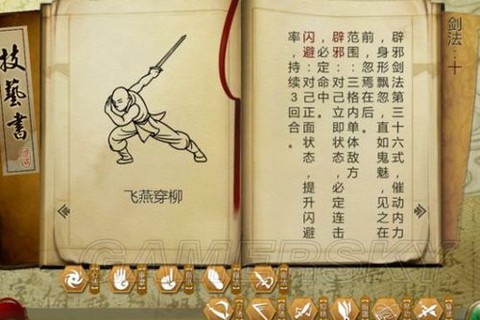 技藝書
飞燕穿柳
剑法·十
辟邪剑法第三十六式，催动内力
，身形飘忽，直如鬼魅，见之在
前，忽焉在后。
范围：三格内单体敌方
辟邪：对己立即状态，必定连击
，必定命中
闪避：对己正面状态，提升闪避
率，持续3回合。
GAMERSKY